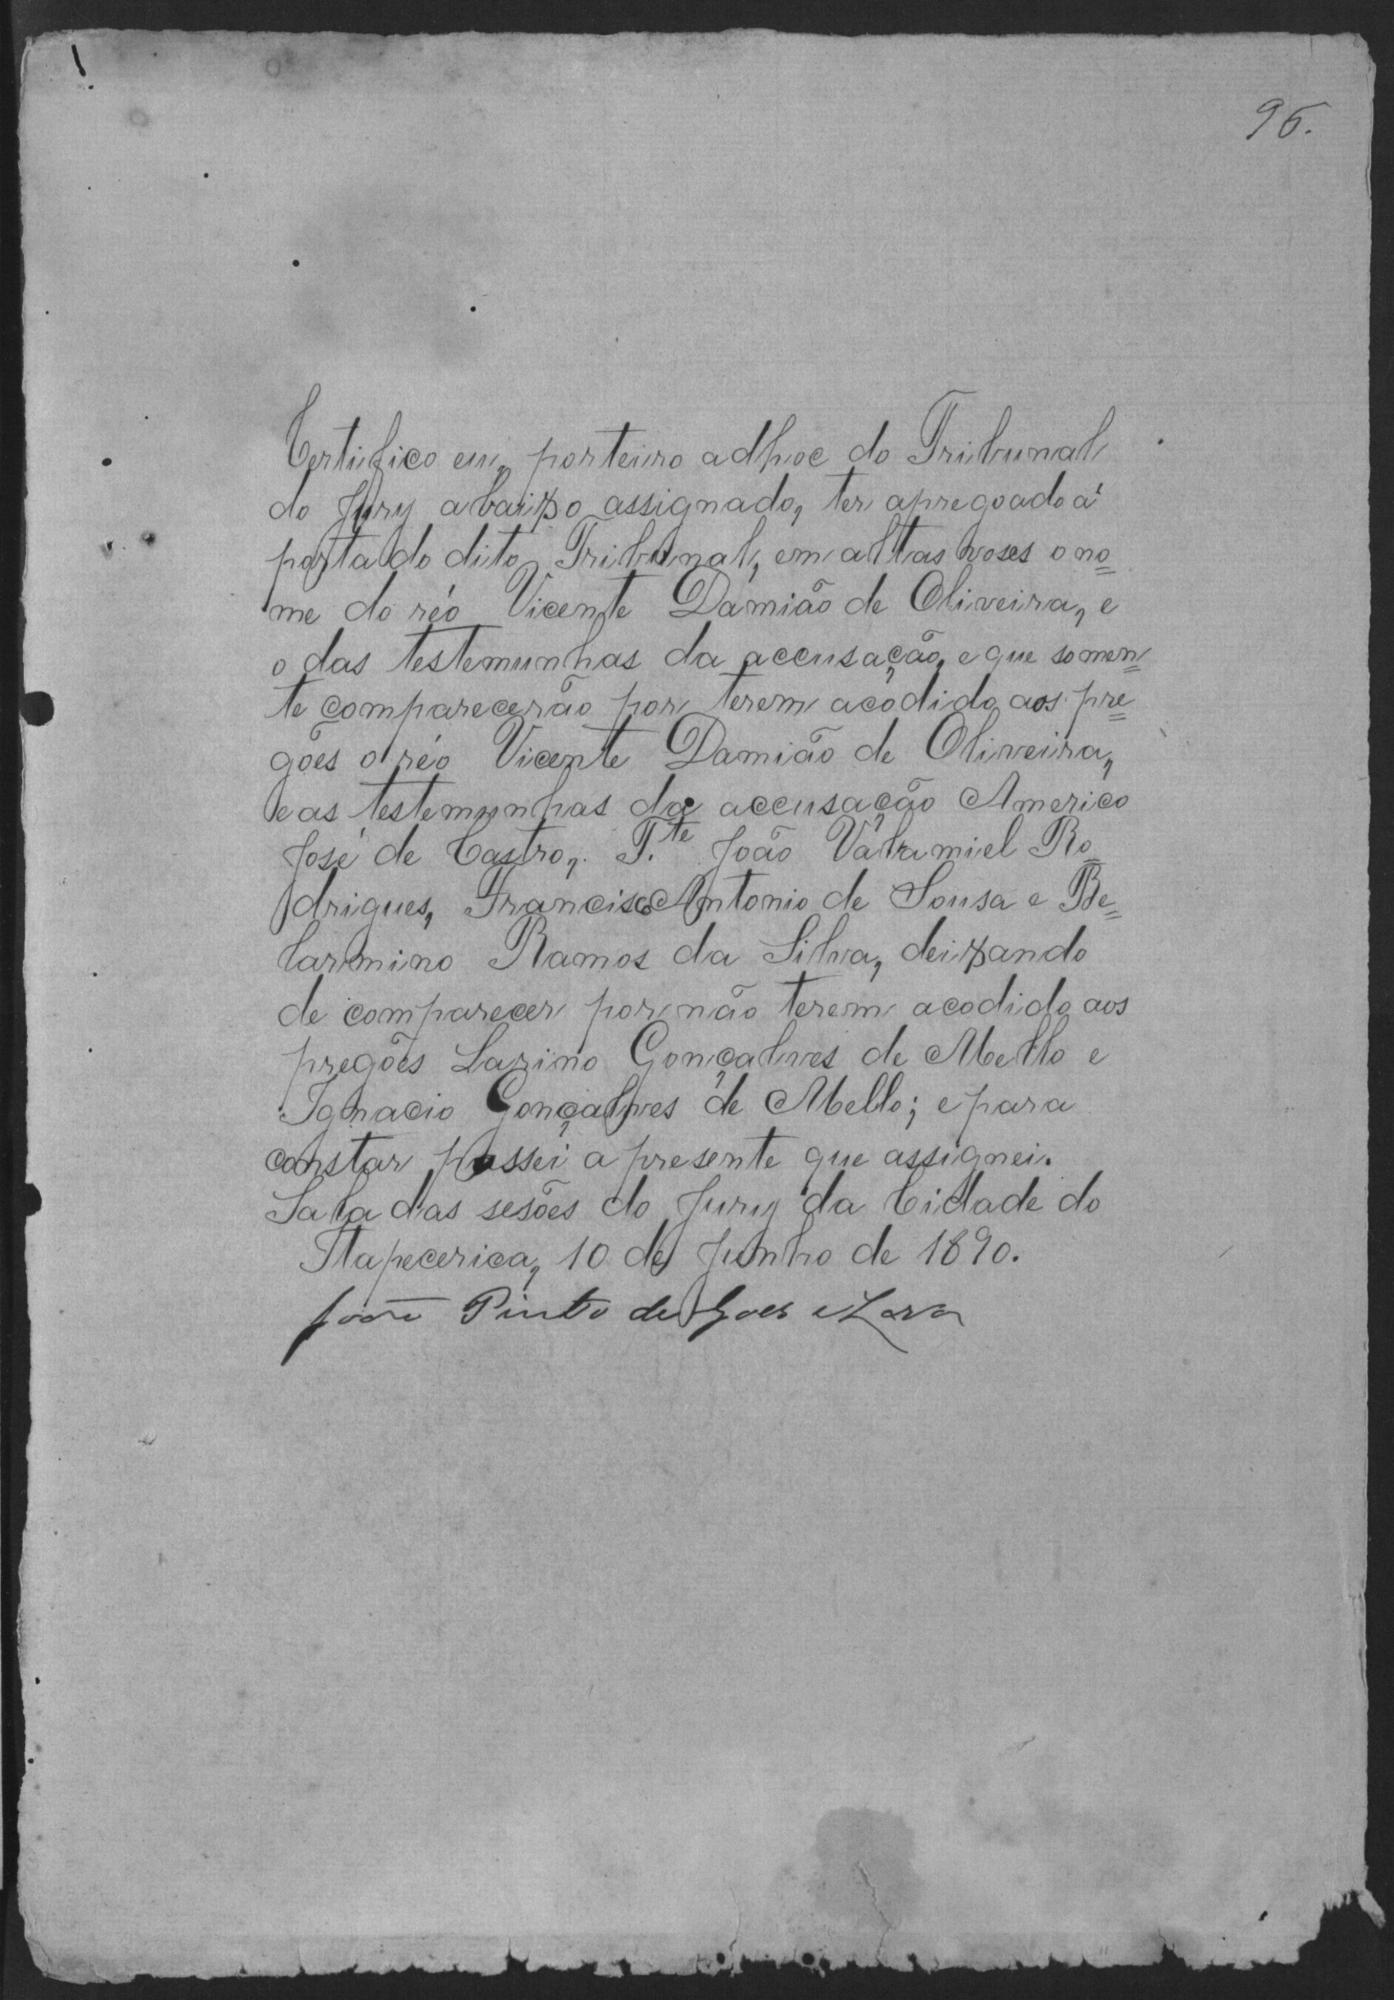 96.
Certifico eu, porteiro adhoc do Tribunal
do Jury abaixo assignado, ter apregoado á
porta do dito Tribunal, em altas voses o no=
me do réo Vicente Damião de Oliveira, e
o das testemunhas da accusação, e que somen=
te comparecerão por terem acodido aos pre=
gões o réo Vicente Damião de Oliveira,
e as testemunhas da accusação Americo
José de Castro, T.te João Valamiel Ro=
drigues, Francisco Antonio de Sousa e Be=
larmino Ramos da Silva, deixando
de comparecer por não terem acodido aos
pregões Larino Gonçalves de Mello e
Ignacio Gonçalves de Mello; e para
constar passei a presente que assignei.
Sala das sesões do Jury da Cidade do
Itapecerica, 10 de Junho de 1890.
João Pinto de Goes e Lara